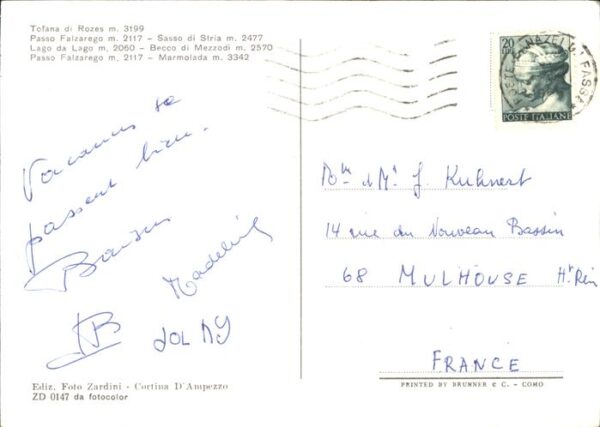 Tofana di Rozes m. 3199
Passo Falzarego m. 2117 - Sasso di Stria m. 2477
Lago da Lago m. 2060 - Becco di Mezzodì m. 2570
Passo Falzarego m. 2117 - Marmolada m. 3342
Vacances se
passent bien.
Baisers
Madeleine
JB
Ediz. Foto Zardini - Cortina D'Ampezzo
ZD 0147 da fotocolor
20
POSTE ITALIANE
CANAZEI
FASSA
Mme et Mr J. Kuhnert
14 rue du Nouveau Bassin
68 MULHOUSE Ht Rhin
FRANCE
PRINTED BY BRUNNER & C. - COMO